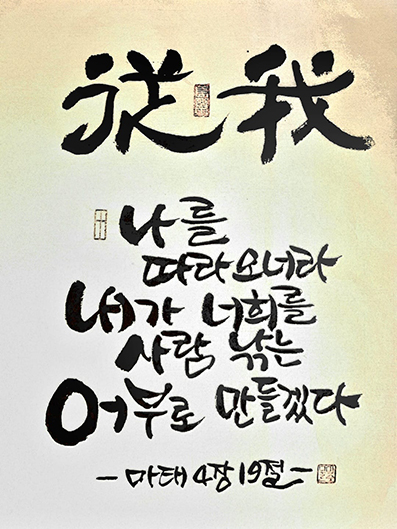 從我
나를
따라오너라
내가 너희를
사람 낚는
어부로 만들겠다
- 마태 4장 19절 -